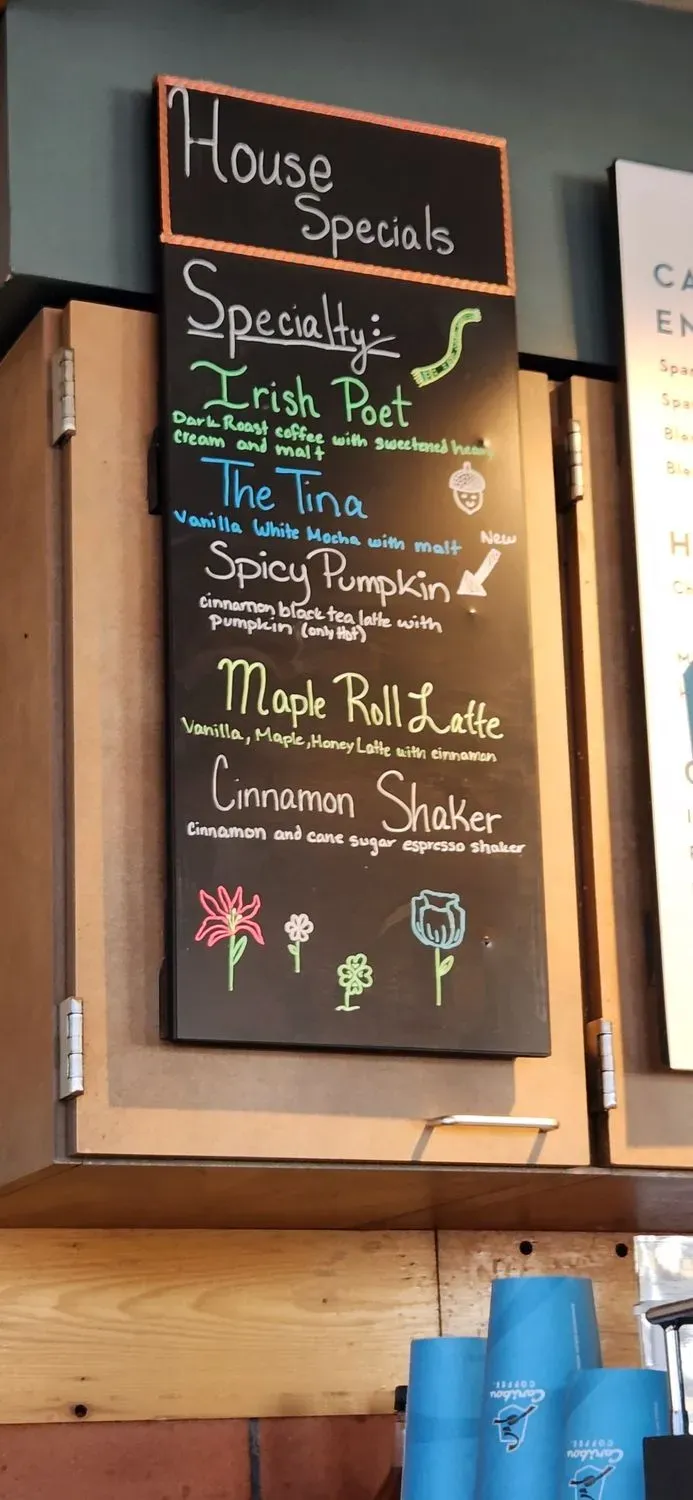 House
Specials
Specialty:
Irish Poet
Dark Roast coffee with sweetened heavy
cream and malt
The Tina
Vanilla White Mocha with malt
New
Spicy Pumpkin
cinnamon black tea latte with
pumpkin (only Hot)
Maple Roll Latte
Vanilla, Maple, Honey Latte with cinnamon
Cinnamon Shaker
Cinnamon and cane sugar espresso shaker
CA
EN
Spar
Spa
Ble
Ble
H
Caribou
COFFEE
Caribou
COFFEE